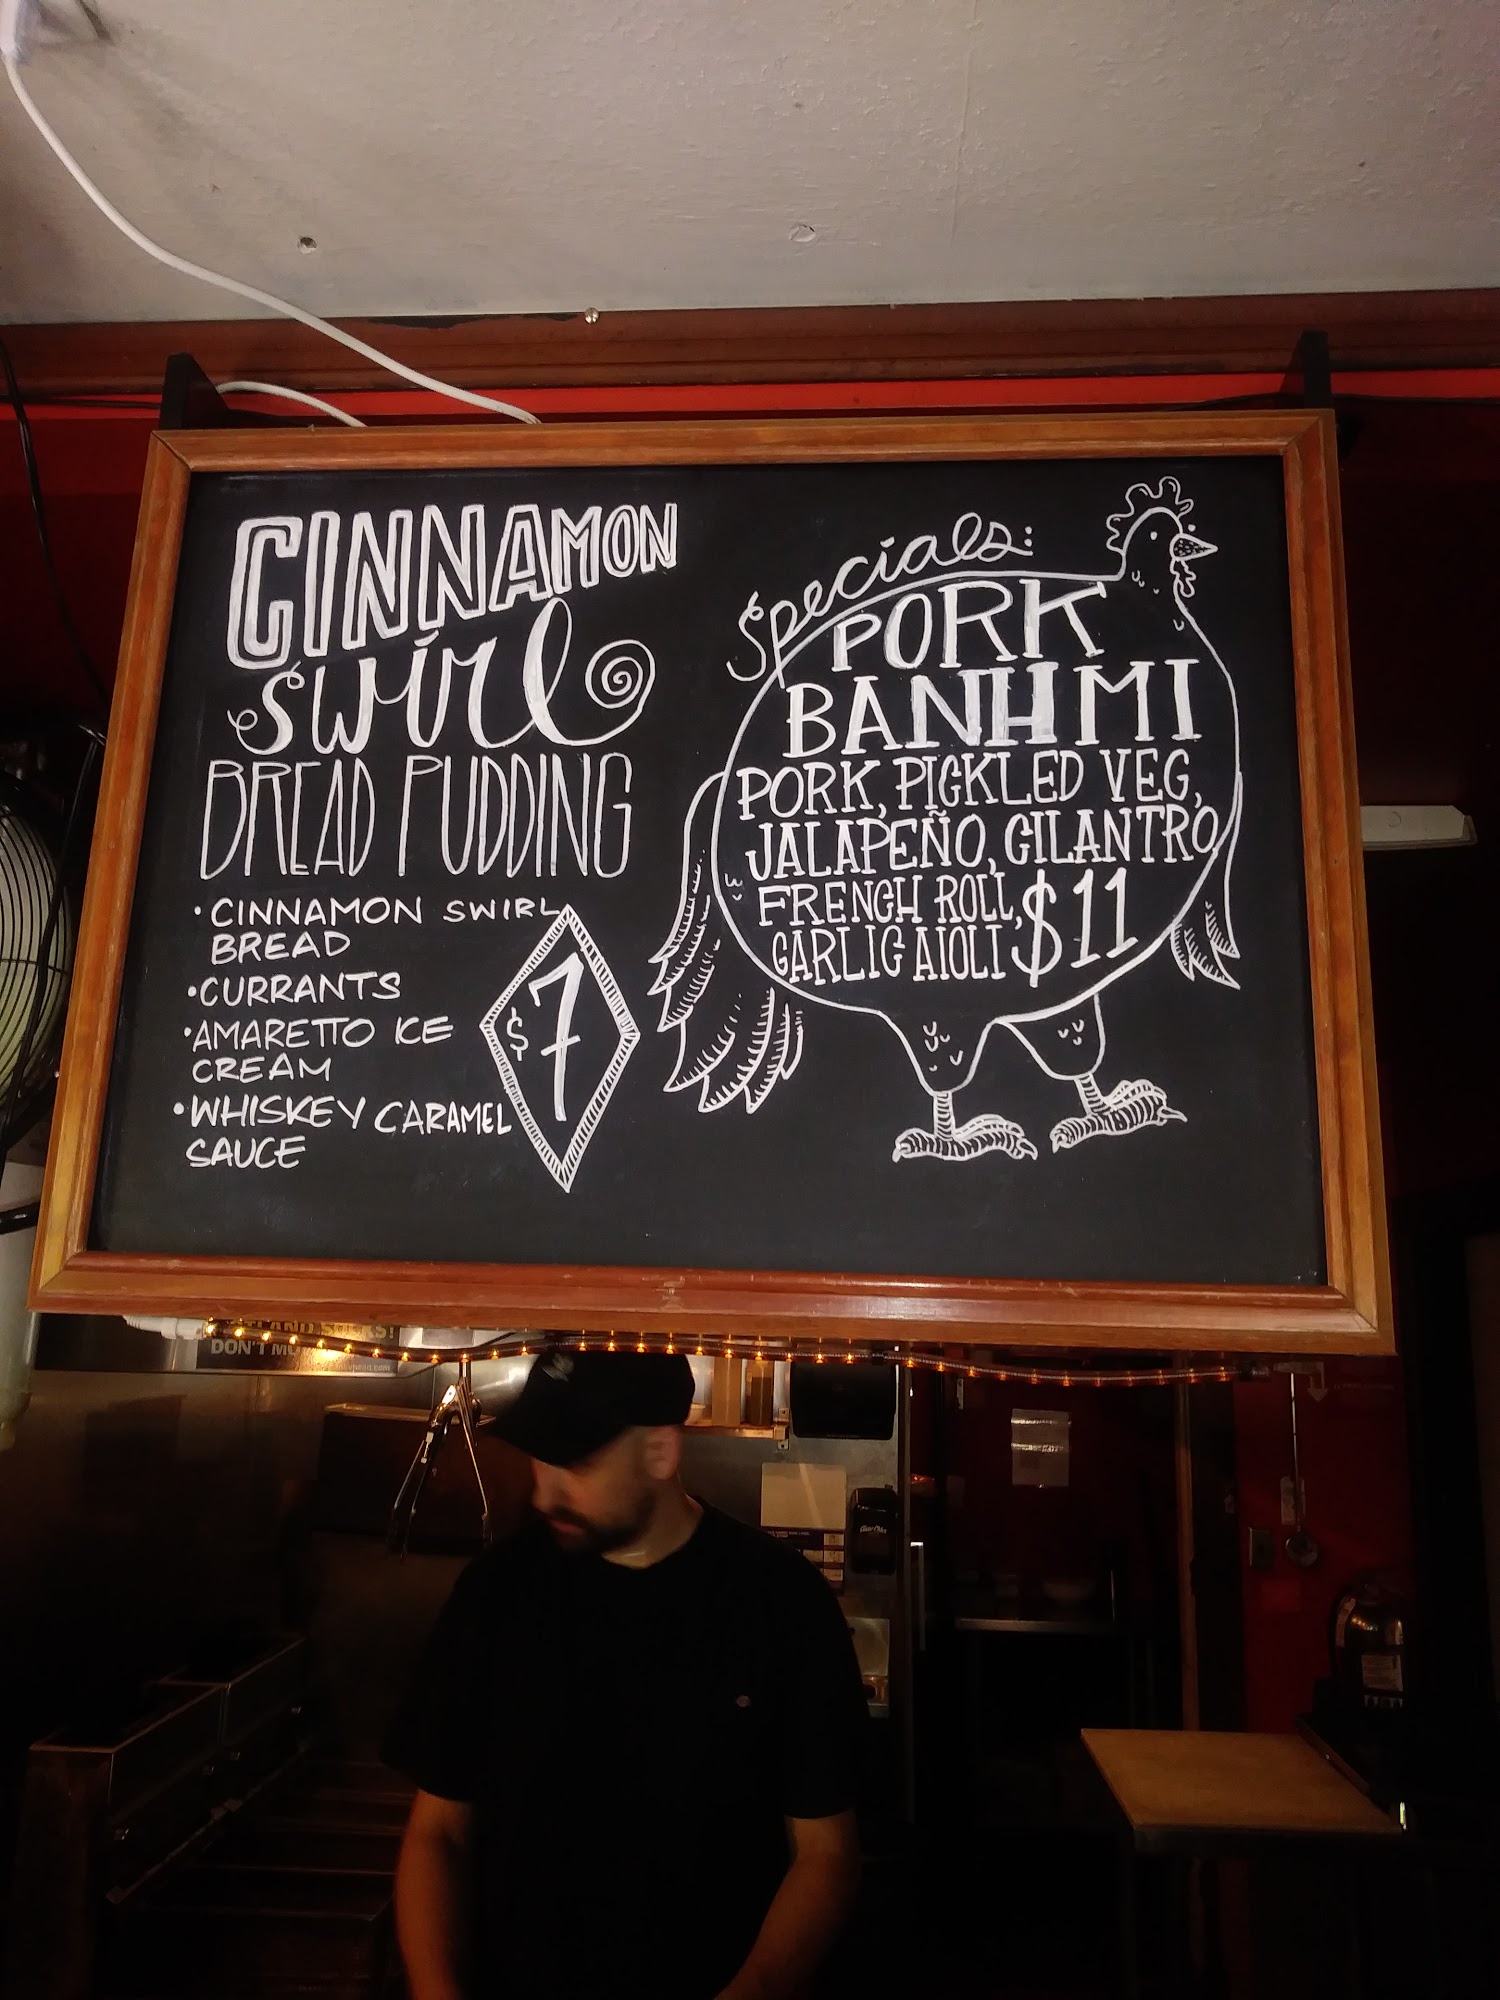 CINNAMON
swirl
BREAD PUDDING
• CINNAMON SWIRL
BREAD
• CURRANTS
• AMARETTO ICE
CREAM
• WHISKEY CARAMEL
SAUCE
$7
Specials:
PORK
BANH MI
PORK, PICKLED VEG,
JALAPEÑO, CILANTRO
FRENCH ROLL,
GARLIC AIOLI $11
DON'T